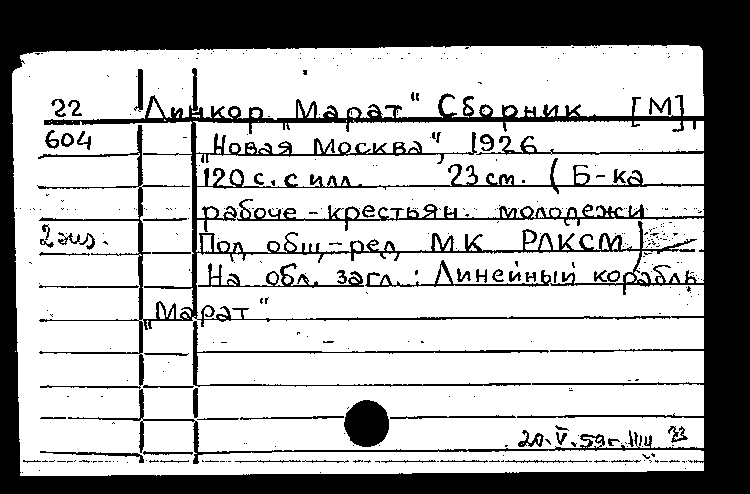 22 Линкор „Марат" Сборник. [М],
604 „Новая Москва", 1926.
120 с. с илл. 23 см. (Б-ка
рабоче-крестьян. молодежи
2 экз. Под общ.-ред. МК РЛКСМ)
На обл. загл.: Линейный корабль
„Марат".
20.V.59г.